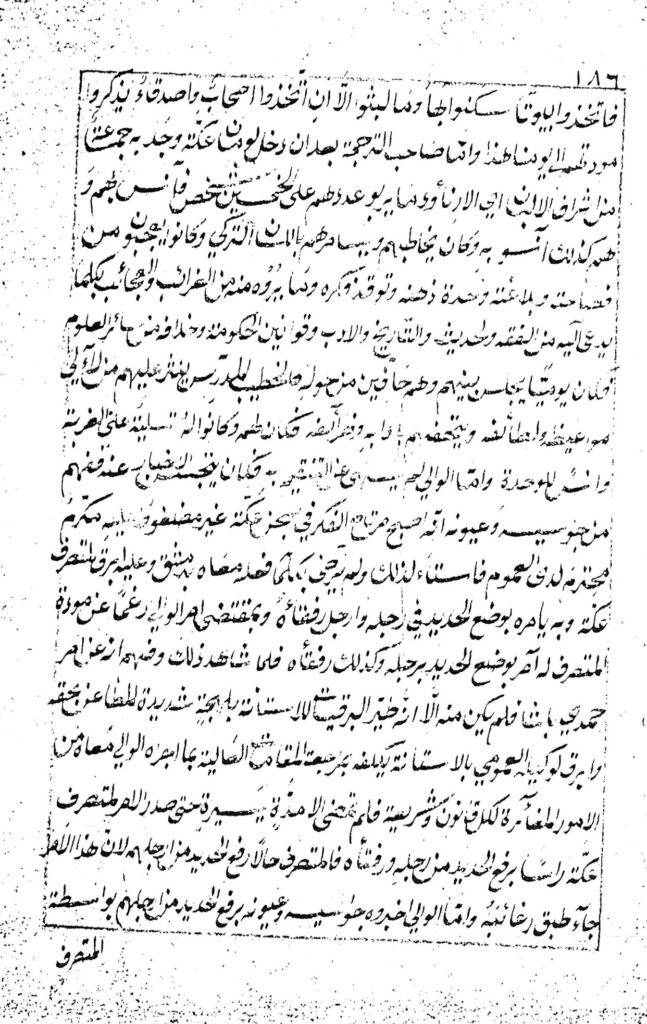 ١٨٦
فاتخذوا بيوتًا سكنوا بها وما لبثوا الّا ان اتّخذوا اصحابًا واصدقاءُ يذكروا
مودتهم الى يومنا هذا وامّا صاحب الترجمة بعد ان دخل لومان عكّة وجد به جمعًا
من اشراف الالبان اي الارناؤد ما يربو عددهم على الخمسين شخص فآنس بهم و
هم كذلك آنسو به وكان يخاطبهم ويسامرهم باللسان التركي وكانوا يعجبون من
فصاحته وبلاغته وحدة ذهنه وتوقد فكره وما يروه منه من الغرائب والعجائب بكلما
يدعى اليه من الفقه والحديث والتاريخ والادب وقوانين الحكومة وخلافه من سائر العلوم
فكان يوميًا يجلس بينهم وهم حافين من حوله كالخطيب المدرس ينثر عليهم من لآلي
مواعيظه ولطائفه ويتحفهم بآدابه فكان لهم وكانوا له تسلية على الغربة
وانسًا للوحدة وامّا الوالي لم عن به فكان الاخبار عنه ففهم
من جوسيسه وعيونه انّه اصبح مرتاح الفكر في سجن عكّة غير مضغوط عليه مكرمٌ
محترم لدى العموم فاستاءَ لذلك ولم يرضى بكلما فعله معاه بدمشق وعليه ابرق لمتصرف
عكّة وبه يامره بوضع الحديد في رجله وارجل رفقاه وبمقتضى امر الوالي رغمًا عن مودة
المتصرف له آمر بوضع الحديد برجله وكذلك رفقاه فلما شاهد ذلك وفهم انّه عن امر
حمدي باشا فلم يكن منه الّا انّه طيّر البرقيات للاستانة بلهجةٍ شديدة للطاعن بحقه
وابرق لوكيله العمومي بالاستانة يكلفه بمراجعة المقامات العالية بما اجراه الوالي معاه من
الامور المغائرة لكل قانون وشريعة فلم تمضى الا مدّة يسيرة حتى صدر الامر لمتصرف
عكّة راسًا برفع الحديد من رجله ورفقاه فالمتصرف حالًا رفع الحديد من ارجلهم لانّ هذا الامر
جآء طبق رغائبه وامّا الوالي اخبروه جواسيسه وعيونه برفع الحديد من ارجلهم بواسطة
المتصرف